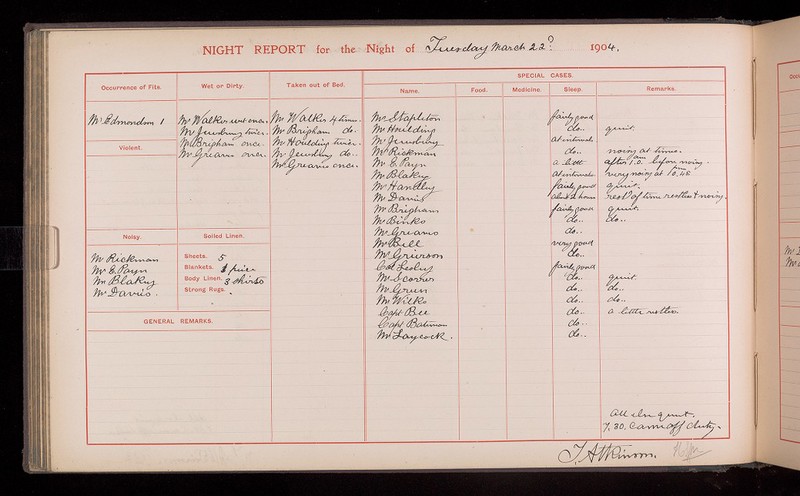 NIGHT REPORT for the Night of Tuesday March 22ⁿᵈ 1904.
Occurrence of Fits.
Mr Edmondson 1
Violent.
Noisy.
Mr Rickman
Mr E. Payn
Mr Blakey
Mr Davies.
Wet or Dirty.
Mr Walker wet once.
Mr Jewsbury twice.
Mr Brigham once.
Mr Greaves once.
Soiled Linen.
Sheets. 5
Blankets. 1 piece
Body Linen. 3 shirts
Strong Rugs.
GENERAL REMARKS.
Taken out of Bed.
Mr Walker 4 times.
Mr Brigham do.
Mr Houlding twice.
Mr Jewsbury do.
Mr Greaves once.
SPECIAL CASES.
Name. Food. Medicine. Sleep. Remarks.
Mr Stapleton fairly good
Mr Houlding do. quiet.
Mr Jewsbury at intervals
Mr Rickman do. noisy at times.
Mr E. Payn a little after 1.0 am before noisy.
Mr Blakey at intervals very noisy at 10.45 pm
Mr Hanbley fairly good quiet.
Mr Davies about 2 hours rest of time restless & noisy.
Mr Brigham fairly good quiet.
Mr Binks do. do.
Mr Greaves do.
Mr Bell very good
Mr Grierson do.
Col Leslie fairly good
Mr Scorer do. quiet.
Mr Green do. do.
Mr Wilks do. do.
Capt Bee do. a little restless.
Capt Bateman do.
Mr Laycock. do.
All else quiet.
7.30. Came off duty.
T. Atkinson.